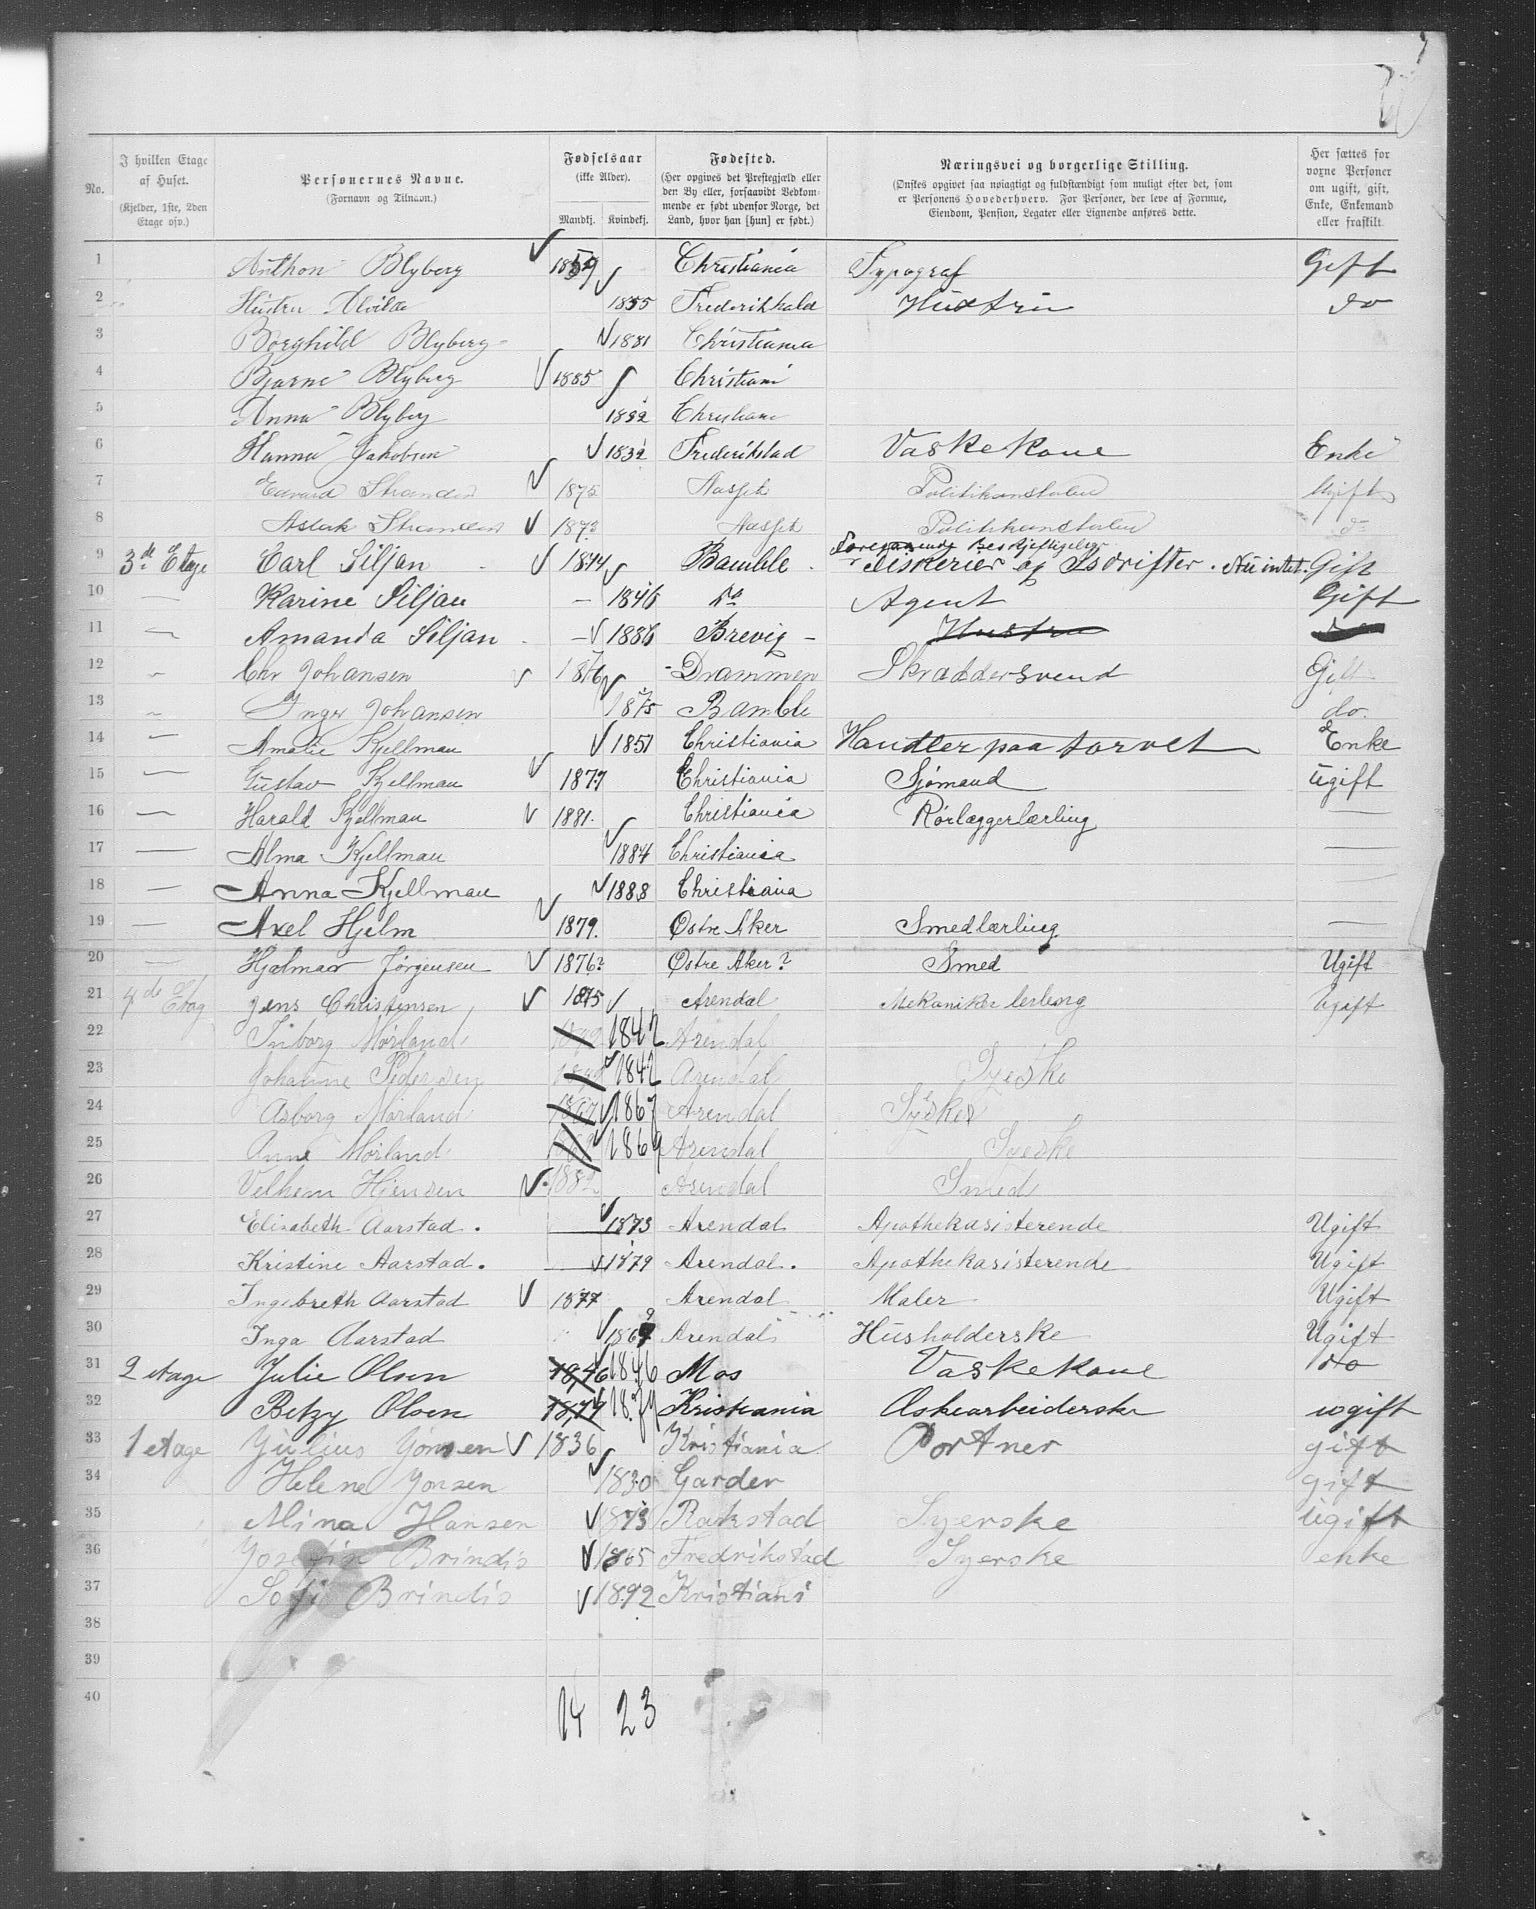 No. I hvilken Etage af Huset. (Kjelder, 1ste, 2den Etage osv.) Personernes Navne. (Fornavn og Tilnavn.) Fødselsaar (ikke Alder). Mandkj. Kvindekj. Fødested. (Her opgives det Prestegjæld eller den By eller, forsaavidt Vedkommende er født udenfor Norge, det Land, hvor han [hun] er født.) Næringsvei og borgerlige Stilling. (Ønskes opgivet saa nøiagtigt og fuldstændigt som muligt efter det, som er Personens Hovederhverv. For Personer, der leve af Formue, Eiendom, Pension, Legater eller Lignende anføres dette. Her sættes for vorne Personer om ugift, gift, Enke, Enkemand eller fraskilt.
1 Anthon Blyberg 1859 Christiania Typograf Gift
2 Hustru Alvilde 1855 Frederikshald Hustru do
3 Borghild Blyberg 1881 Christiania
4 Bjarne Blyberg 1885 Christiani
5 Anna Blyberg 1892 Christiani
6 Hanna Jakobsen 1832 Frederikstad Vaskekone Enke
7 Edvard Stranden 1875 Politikonstabel Ugift
8 Aslak Stranden 1873 Politikonstabel do
9 3de Etage Carl Siljan 1844 Bamble Fiskerier og Isdrifter. Nu intet. Gift
10 Karine Siljan 1846 do Agent Gift
11 Amanda Siljan 1886 Brevig Hustru
12 Chr Johansen 1876 Drammen Skraddersvend Gift
13 Inger Johansen 1875 Bamble do.
14 Amalie Kjellman 1851 Christiania Handler paa torvet Enke
15 Gustav Kjellman 1877 Christiania Sjømand Ugift
16 Harald Kjellman 1881. Christiania Rørlæggerlærling
17 Alma Kjellman 1884 Christiania
18 Anna Kjellman 1888 Christiania
19 Axel Hjelm 1879. Østre Aker Smedlærling
20 Hjalmar Jørgensen 1876? Østre Aker? Smed Ugift
21 4de Etag Jens Christensen 1875 Arendal Mekaniker lerleng Ugift
22 Inborg Morland 1842 Arendal
23 Johanne Pedersen 1842 Arendal Syeske
24 Asborg Morland 1867 Arendal Syesker
25 Anne Morland 1869 Arendal Syeske
26 Velhem Hjensen 1882 Arendal Smed
27 Elisabeth Aarstad. 1873 Arendal Apothekasisterende Ugift
28 Kristine Aarstad. 1879 Arendal. Apothekasisterende Ugift
29 Ingebreth Aarstad 1877 Arendal Maler Ugift
30 Inga Aarstad 1869 Arendal Husholderske Ugift
31 2 etage Julie Olsen 1846 1846 Mos Vaskekone do
32 Betzy Olsen 1874 Kristiania Æskearbeiderske ugift
33 1 etage Julius Jonsen 1836 Kristiania Portner gift
34 Helene Jonsen 1830 Garder gift
35 Mina Hansen 1873 Rakstad Syerske ugift
36 Josefin Brindis 1865 Fredrikstad Syerske enke
37 Sofi Brindis 1892 Kristiani
38
39
40
14 23